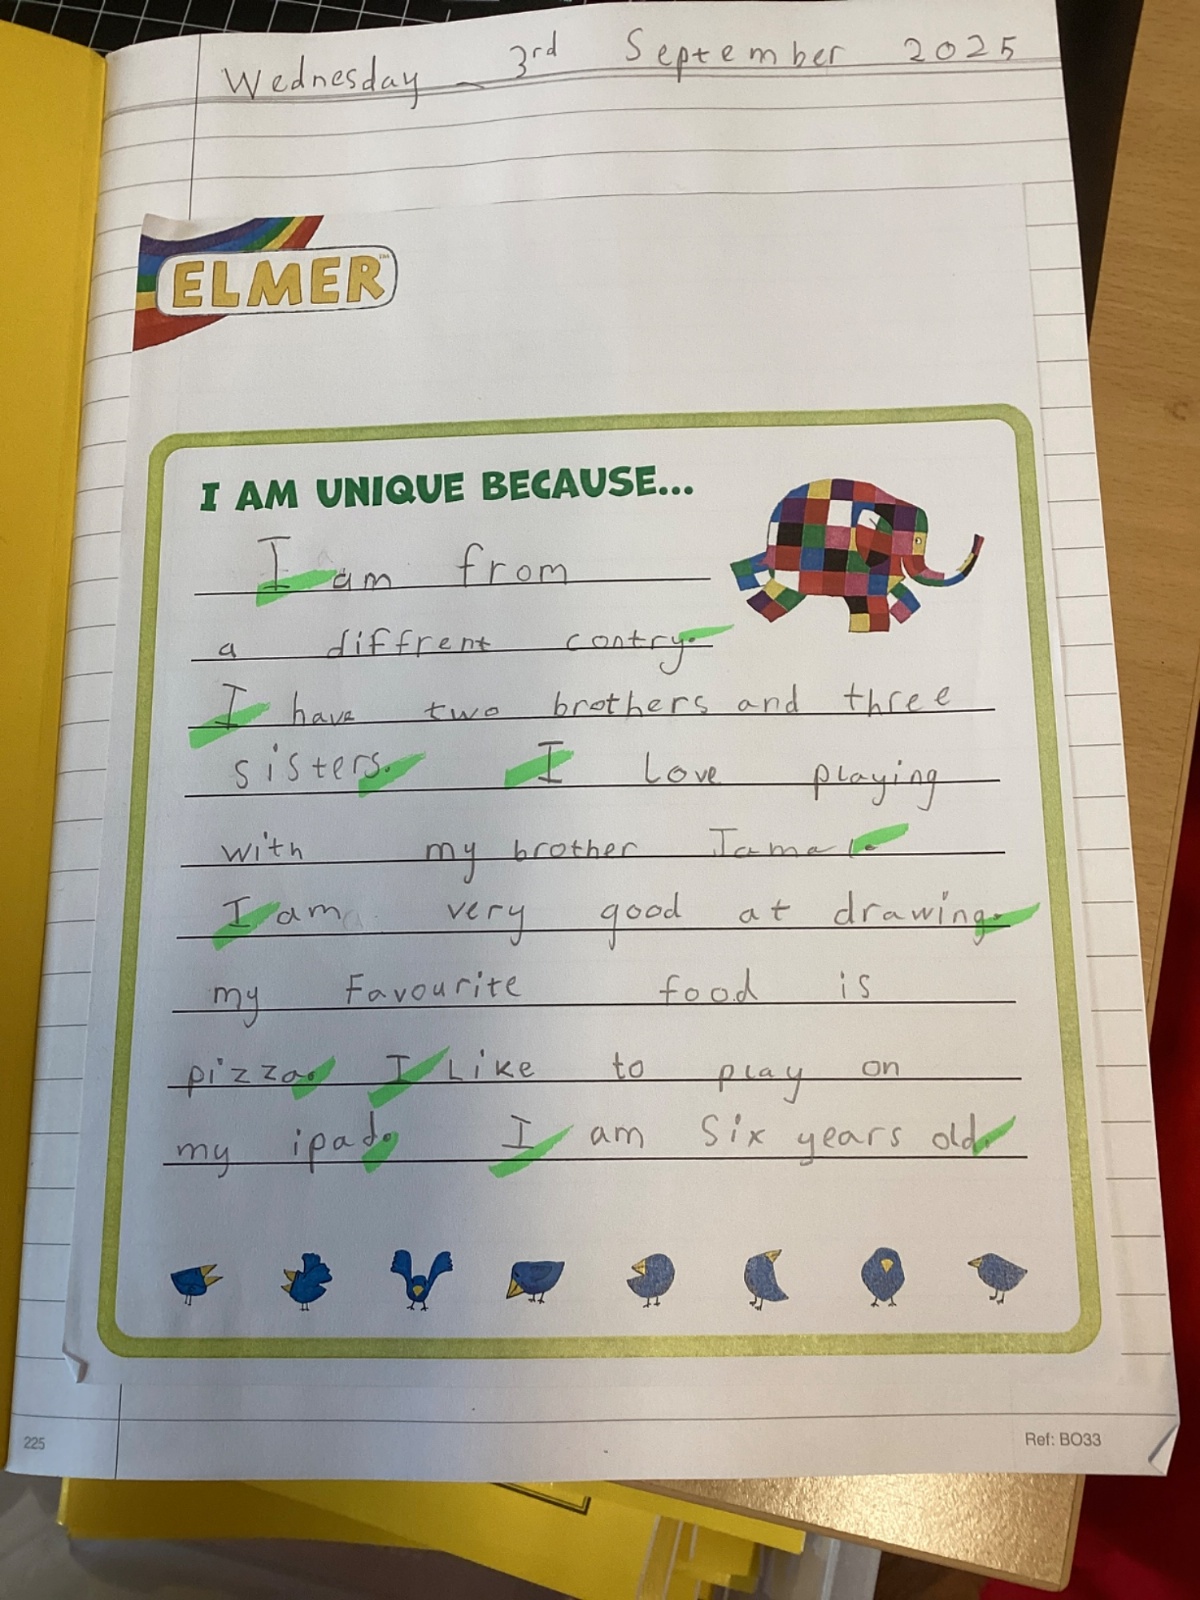 Wednesday 3rd September 2025
ELMER™
I AM UNIQUE BECAUSE...
I am from
a diffrent contry.
I have two brothers and three
sisters. I Love playing
with my brother Jamal.
I am very good at drawing.
my Favourite food is
pizza. I Like to play on
my ipad. I am Six years old.
225
Ref: BO33